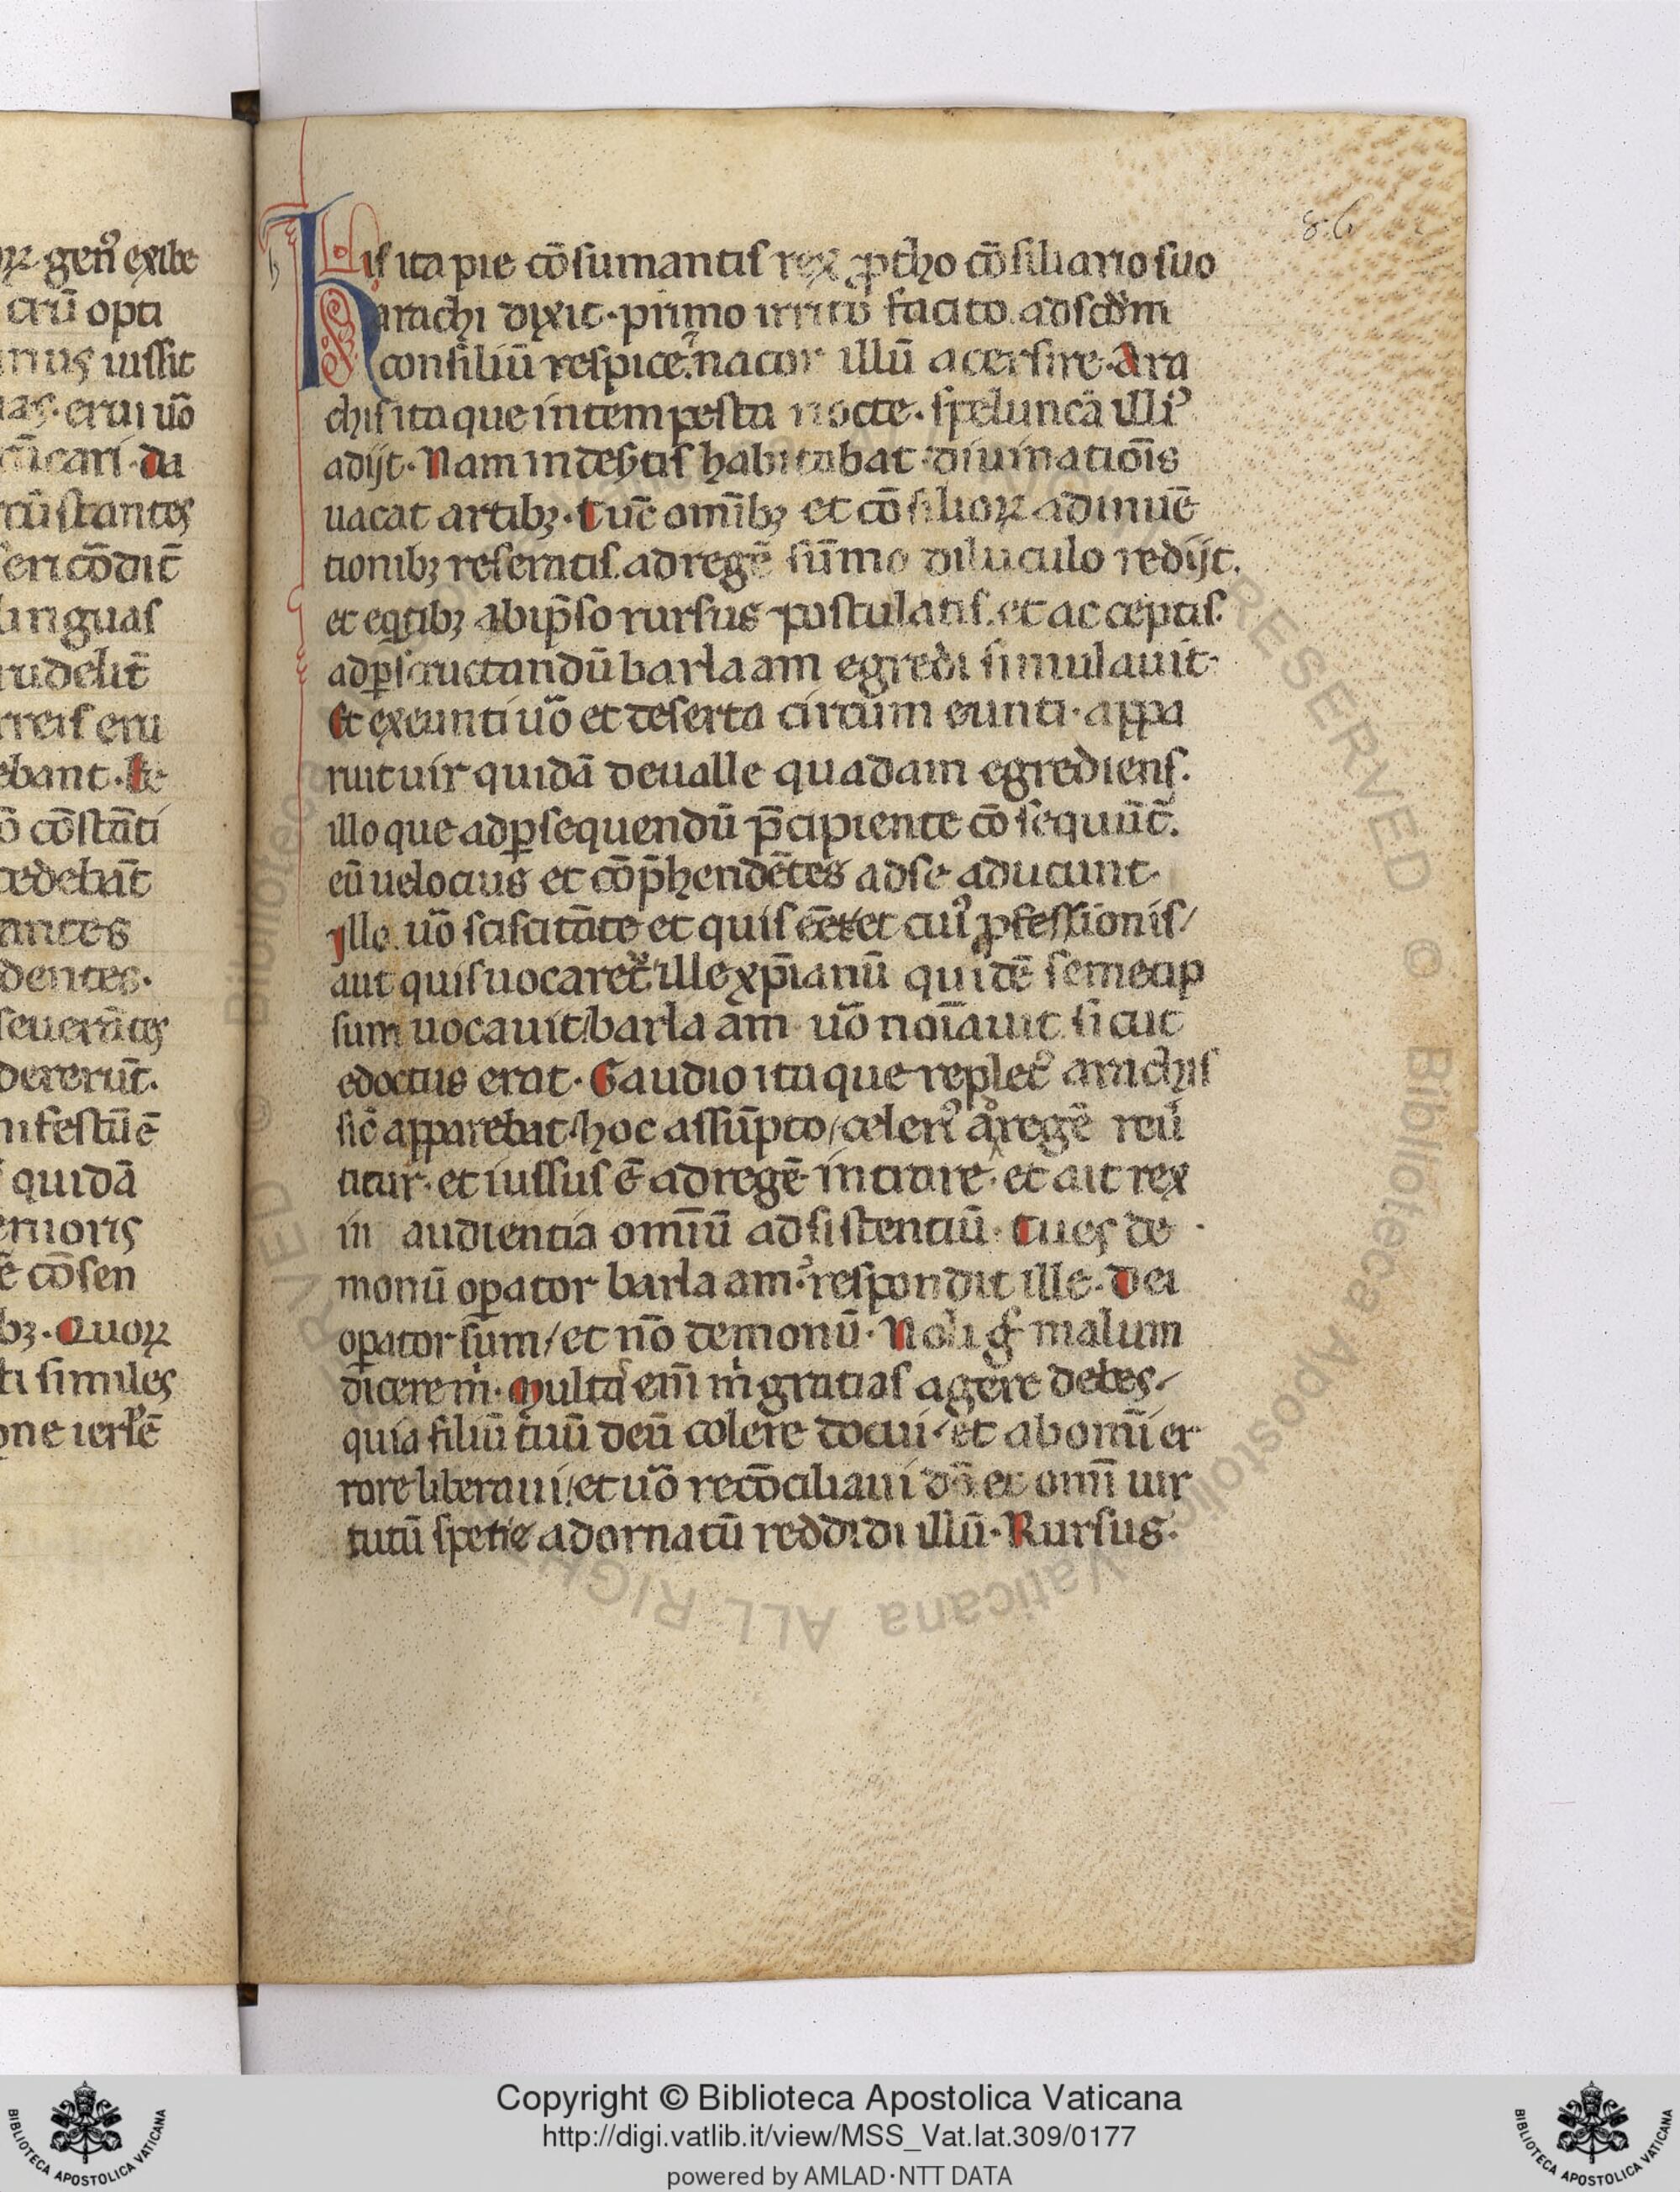 ꝝ gen᷒ exibe
crū opta
mus iussit
as. erui uo̅
cı̅cari. da
cū stantes
eri cōdit̄
linguas
rudelit̄
rreis eru
ebant.
o̅ cōstāti
cedebāt
antes
dentes.
seuerātes
dererūt.
nifestū ē
quidā
eruoris
ē cōsen
bꝫ. Quoꝝ
ti similes
one ierl̄ē
86
His ita pie cōsumantis rex ꝓtho cōsiliario suo
arachi dixit. primo irrito facito. ad scđm
consiliū respice. nacor illū acersire. Ara
chis itaque intempesta nocte. speluncā illi᷒
adijt. Nam in desertis habitabat diuinatiōis
uacat artibꝫ. Tūc omībꝫ et cōsilioꝝ adinuē
tionibꝫ reseratis. ad regē sūmo diluculo redijt.
et eqtibꝫ ab ip̄so rursus postulatis. et acceptis.
ad ꝑscructandū barlaam egredi simulauit.
Et exeunti uo̅ et deserta circum eunti. appa
ruit uir quidā de ualle quadam egrediens.
illo que ad ꝑsequendū p̄cipiente cōsequūt̄.
eū uelocius et cōp̄hendētes ad se aducunt.
Ille uo̅ sciscitāte et quis eēt et cui᷒ ꝓfessionis/
aut quis uocaret᷒ ille xp̄ianū quidē semetip
sum uocauit/ barlaam uo̅ noīauit sicut
edoctus erat. Gaudio itaque replet᷒ arachis
sic̄ apparebat/ hoc assūpto/ celeri᷒ a regē reu̅
titur. et iussus ē ad regē intrare. et ait rex
in audientia omīū adsistentiū. Tu es de
monū oꝑator barlaam. respondit ille. Dei
oꝑator sum/ et nō demonū. Noli g̊ malum
dicere m̍. Multas em̄ m̍ gratias agere debes/
quia filiū tuū deū colere docui/ et ab om̄i er
rore liberaui/ et uo̅ recōciliaui do̅ et om̄i uir
tutū spetie adornatū reddidi illū. Rursus
Copyright © Biblioteca Apostolica Vaticana
http://digi.vatlib.it/view/MSS_Vat.lat.309/0177
powered by AMLAD·NTT DATA
BIBLIOTECA APOSTOLICA VATICANA
BIBLIOTECA APOSTOLICA VATICANA